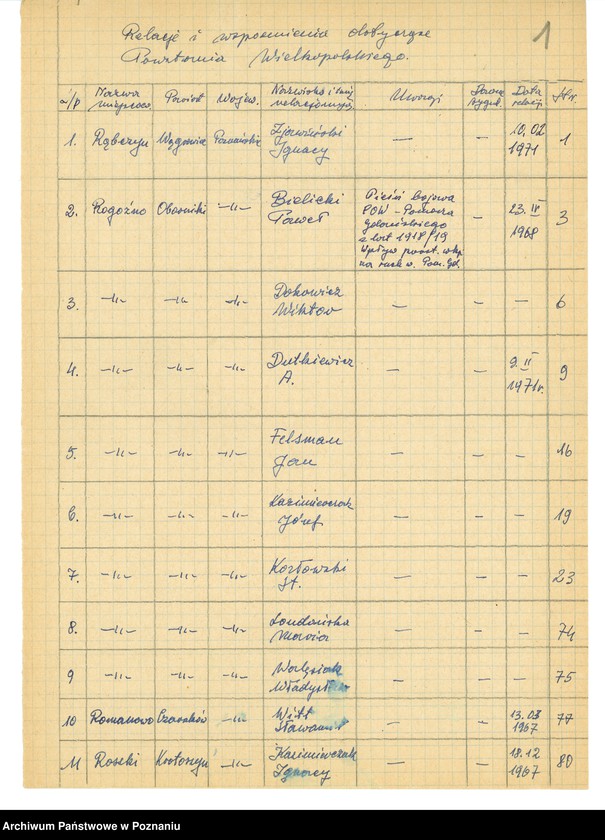 Relacje i wspomnienia dotyczące
Powstania Wielkopolskiego.
1
L/p Nazwa miejscow. Powiat Wojew. Nazwisko i imię relacjonując. Uwagi Data relacji Str.
1. Rąbczyn Wągrowiec Poznański Ignacy — — 10.02 1971 1
2. Rogoźno Oborniki —„— Bielicki Paweł Pieśń bojowa POW - Pomorza Gdańskiego z lat 1918/19 Wpływ powst. wlkp. na ruch w. Pom. Gd. — 23. IV 1968 3
3. —„— —„— —„— Dokowicz Wiktor — — — 6
4. —„— —„— —„— Dutkiewicz A. — — 9. II 1971r. 9
5. —„— —„— —„— Felsman Jan — — — 16
6. —„— —„— —„— Kazimierczak Józef — — — 19
7. —„— —„— —„— Kozłowski St. — — — 23
8. —„— —„— —„— Londońska Maria — — — 74
9 —„— —„— —„— Walęsiak Władysław — — — 75
10 Romanowo Czarnków —„— Witt Sławomir — — 13.03 1967 77
11 Roszki Krotoszyn —„— Kazimierczak Ignacy — — 18.12 1967 80
Archiwum Państwowe w Poznaniu